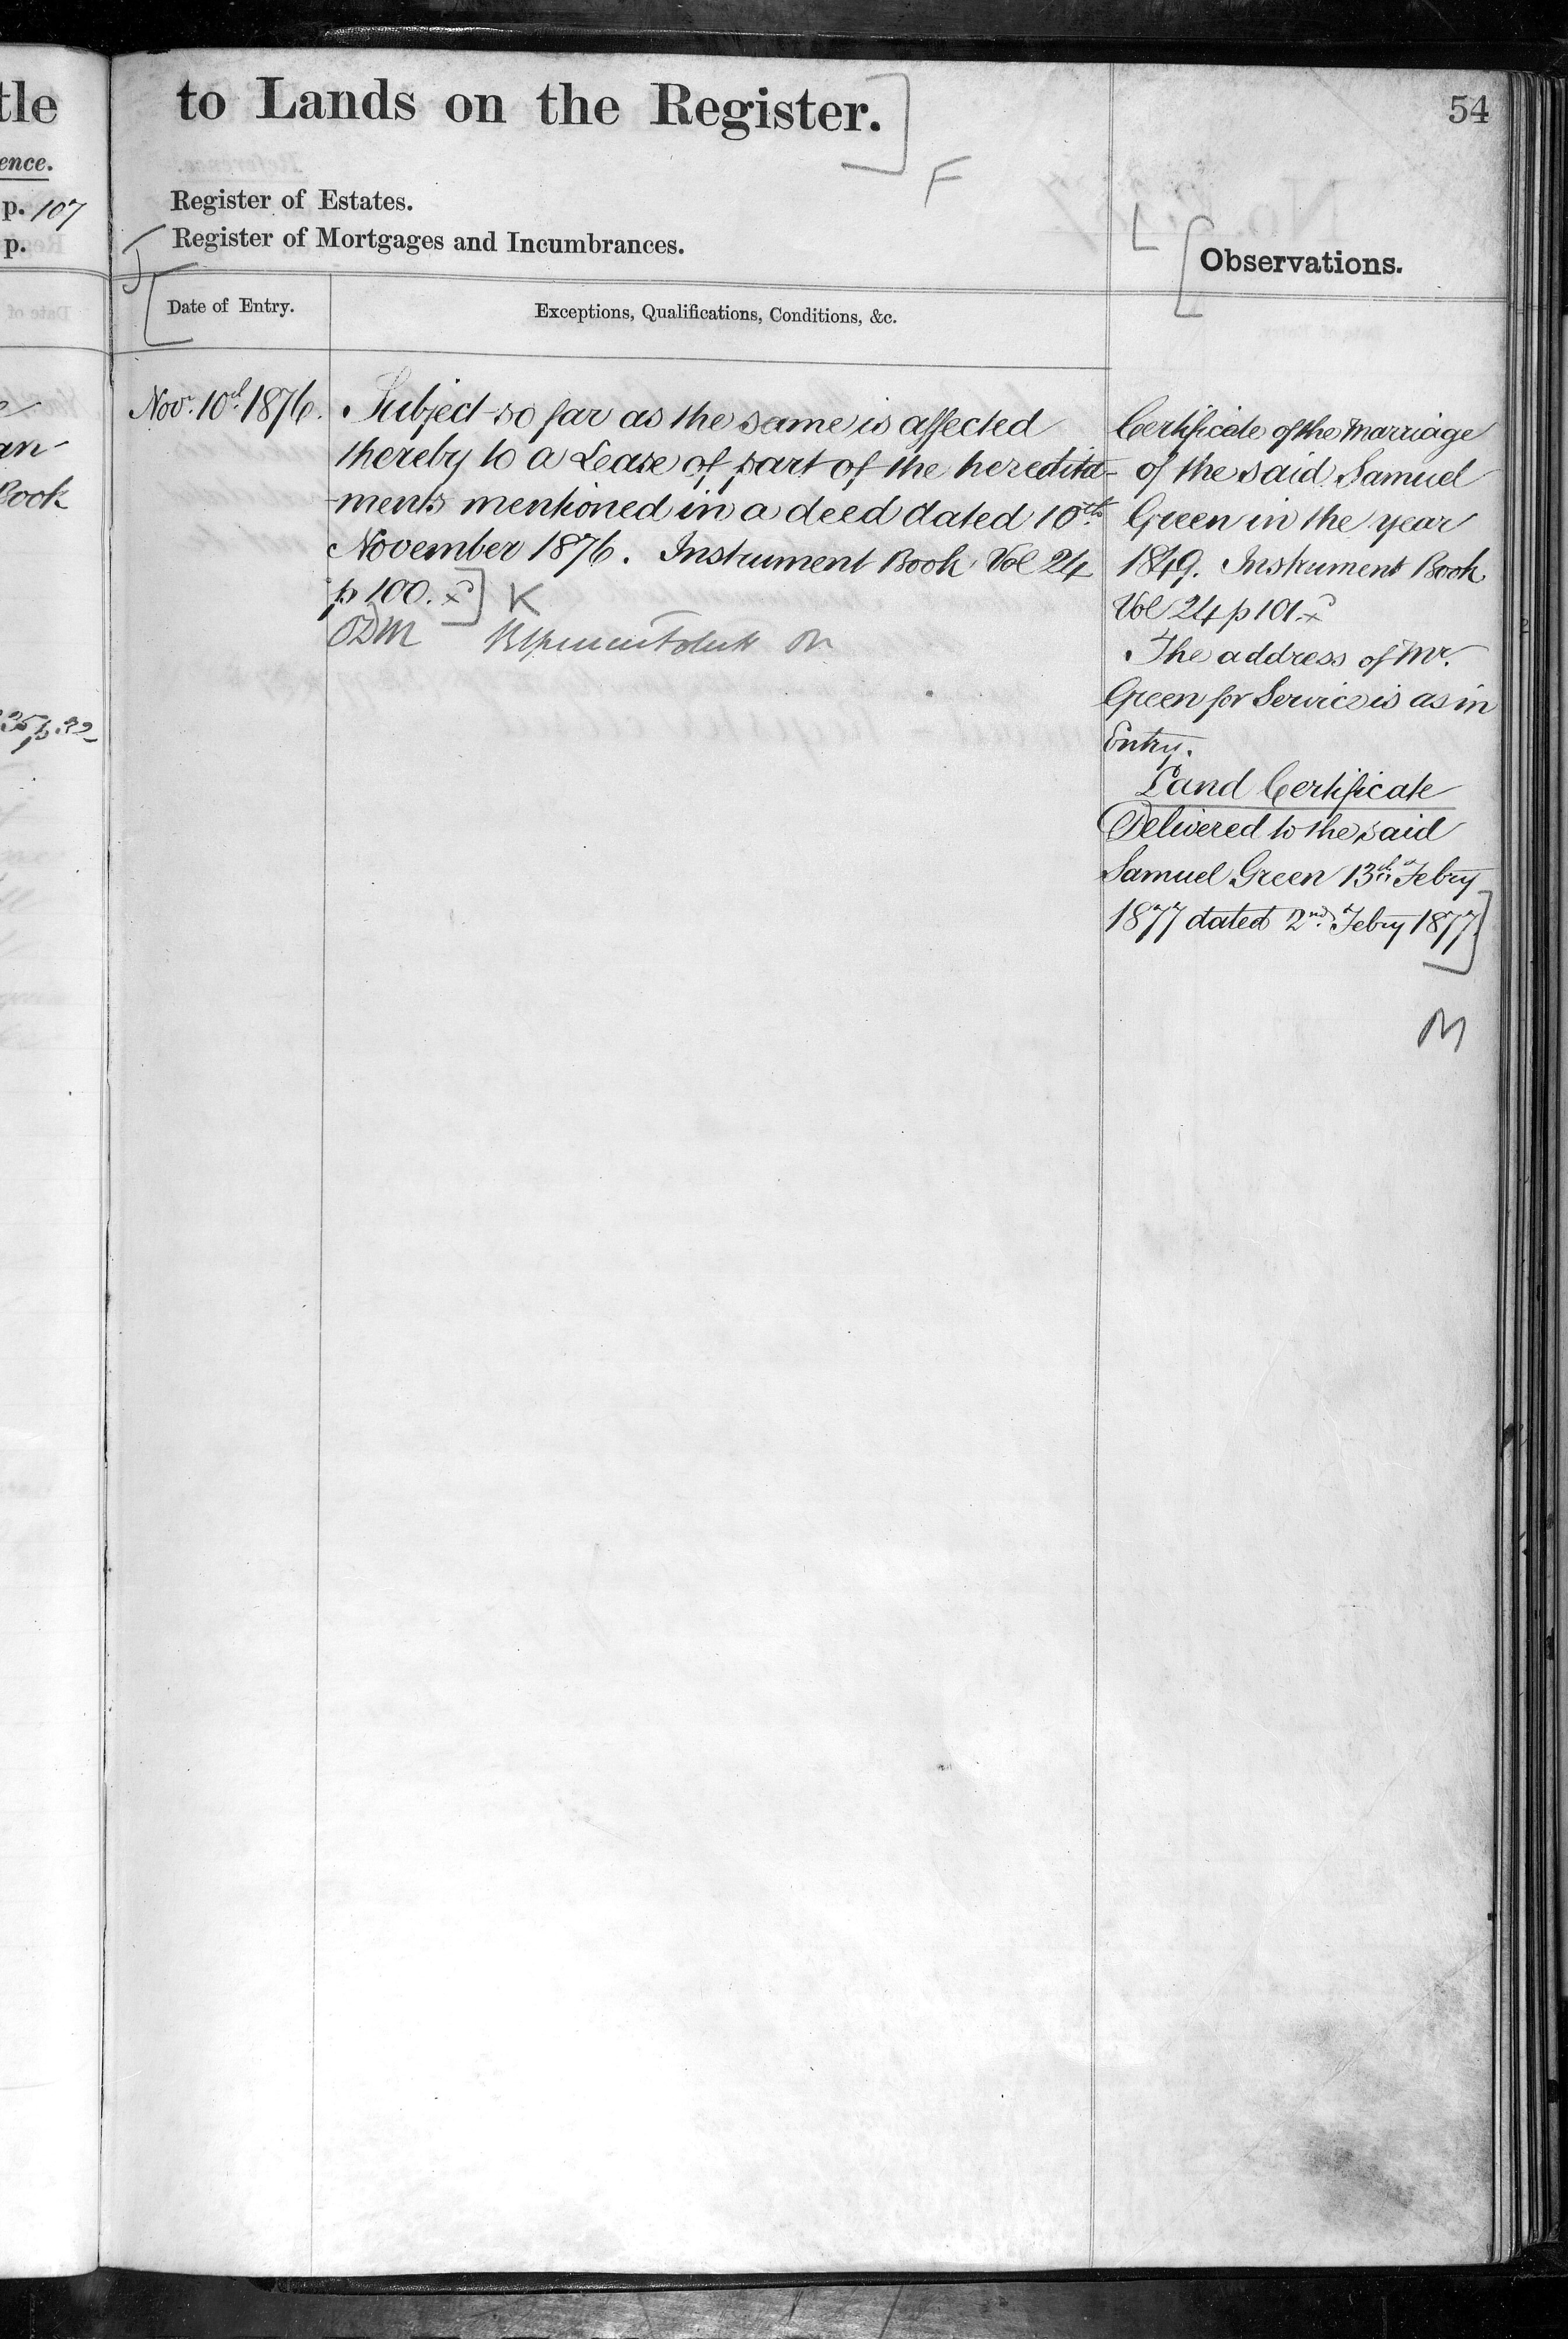 tle
ence.
p. 107
p.
an-
Book
to Lands on the Register.
54
F
Register of Estates.
Register of Mortgages and Incumbrances.
J
L
Observations.
Date of Entry.
Exceptions, Qualifications, Conditions, &c.
Nov. 10th 1876.
Subject so far as the same is affected
thereby to a Lease of part of the heredita-
-ments mentioned in a deed dated 10th
November 1876. Instrument Book Vol 24
p 100. x
K
Certificate of the Marriage
of the said Samuel
Green in the year
1849. Instrument Book
Vol 24 p 101. x
The address of Mr.
Green for Service is as in
Entry.
Land Certificate
Delivered to the said
Samuel Green 13th Febry
1877 dated 2nd Febry 1877.
M